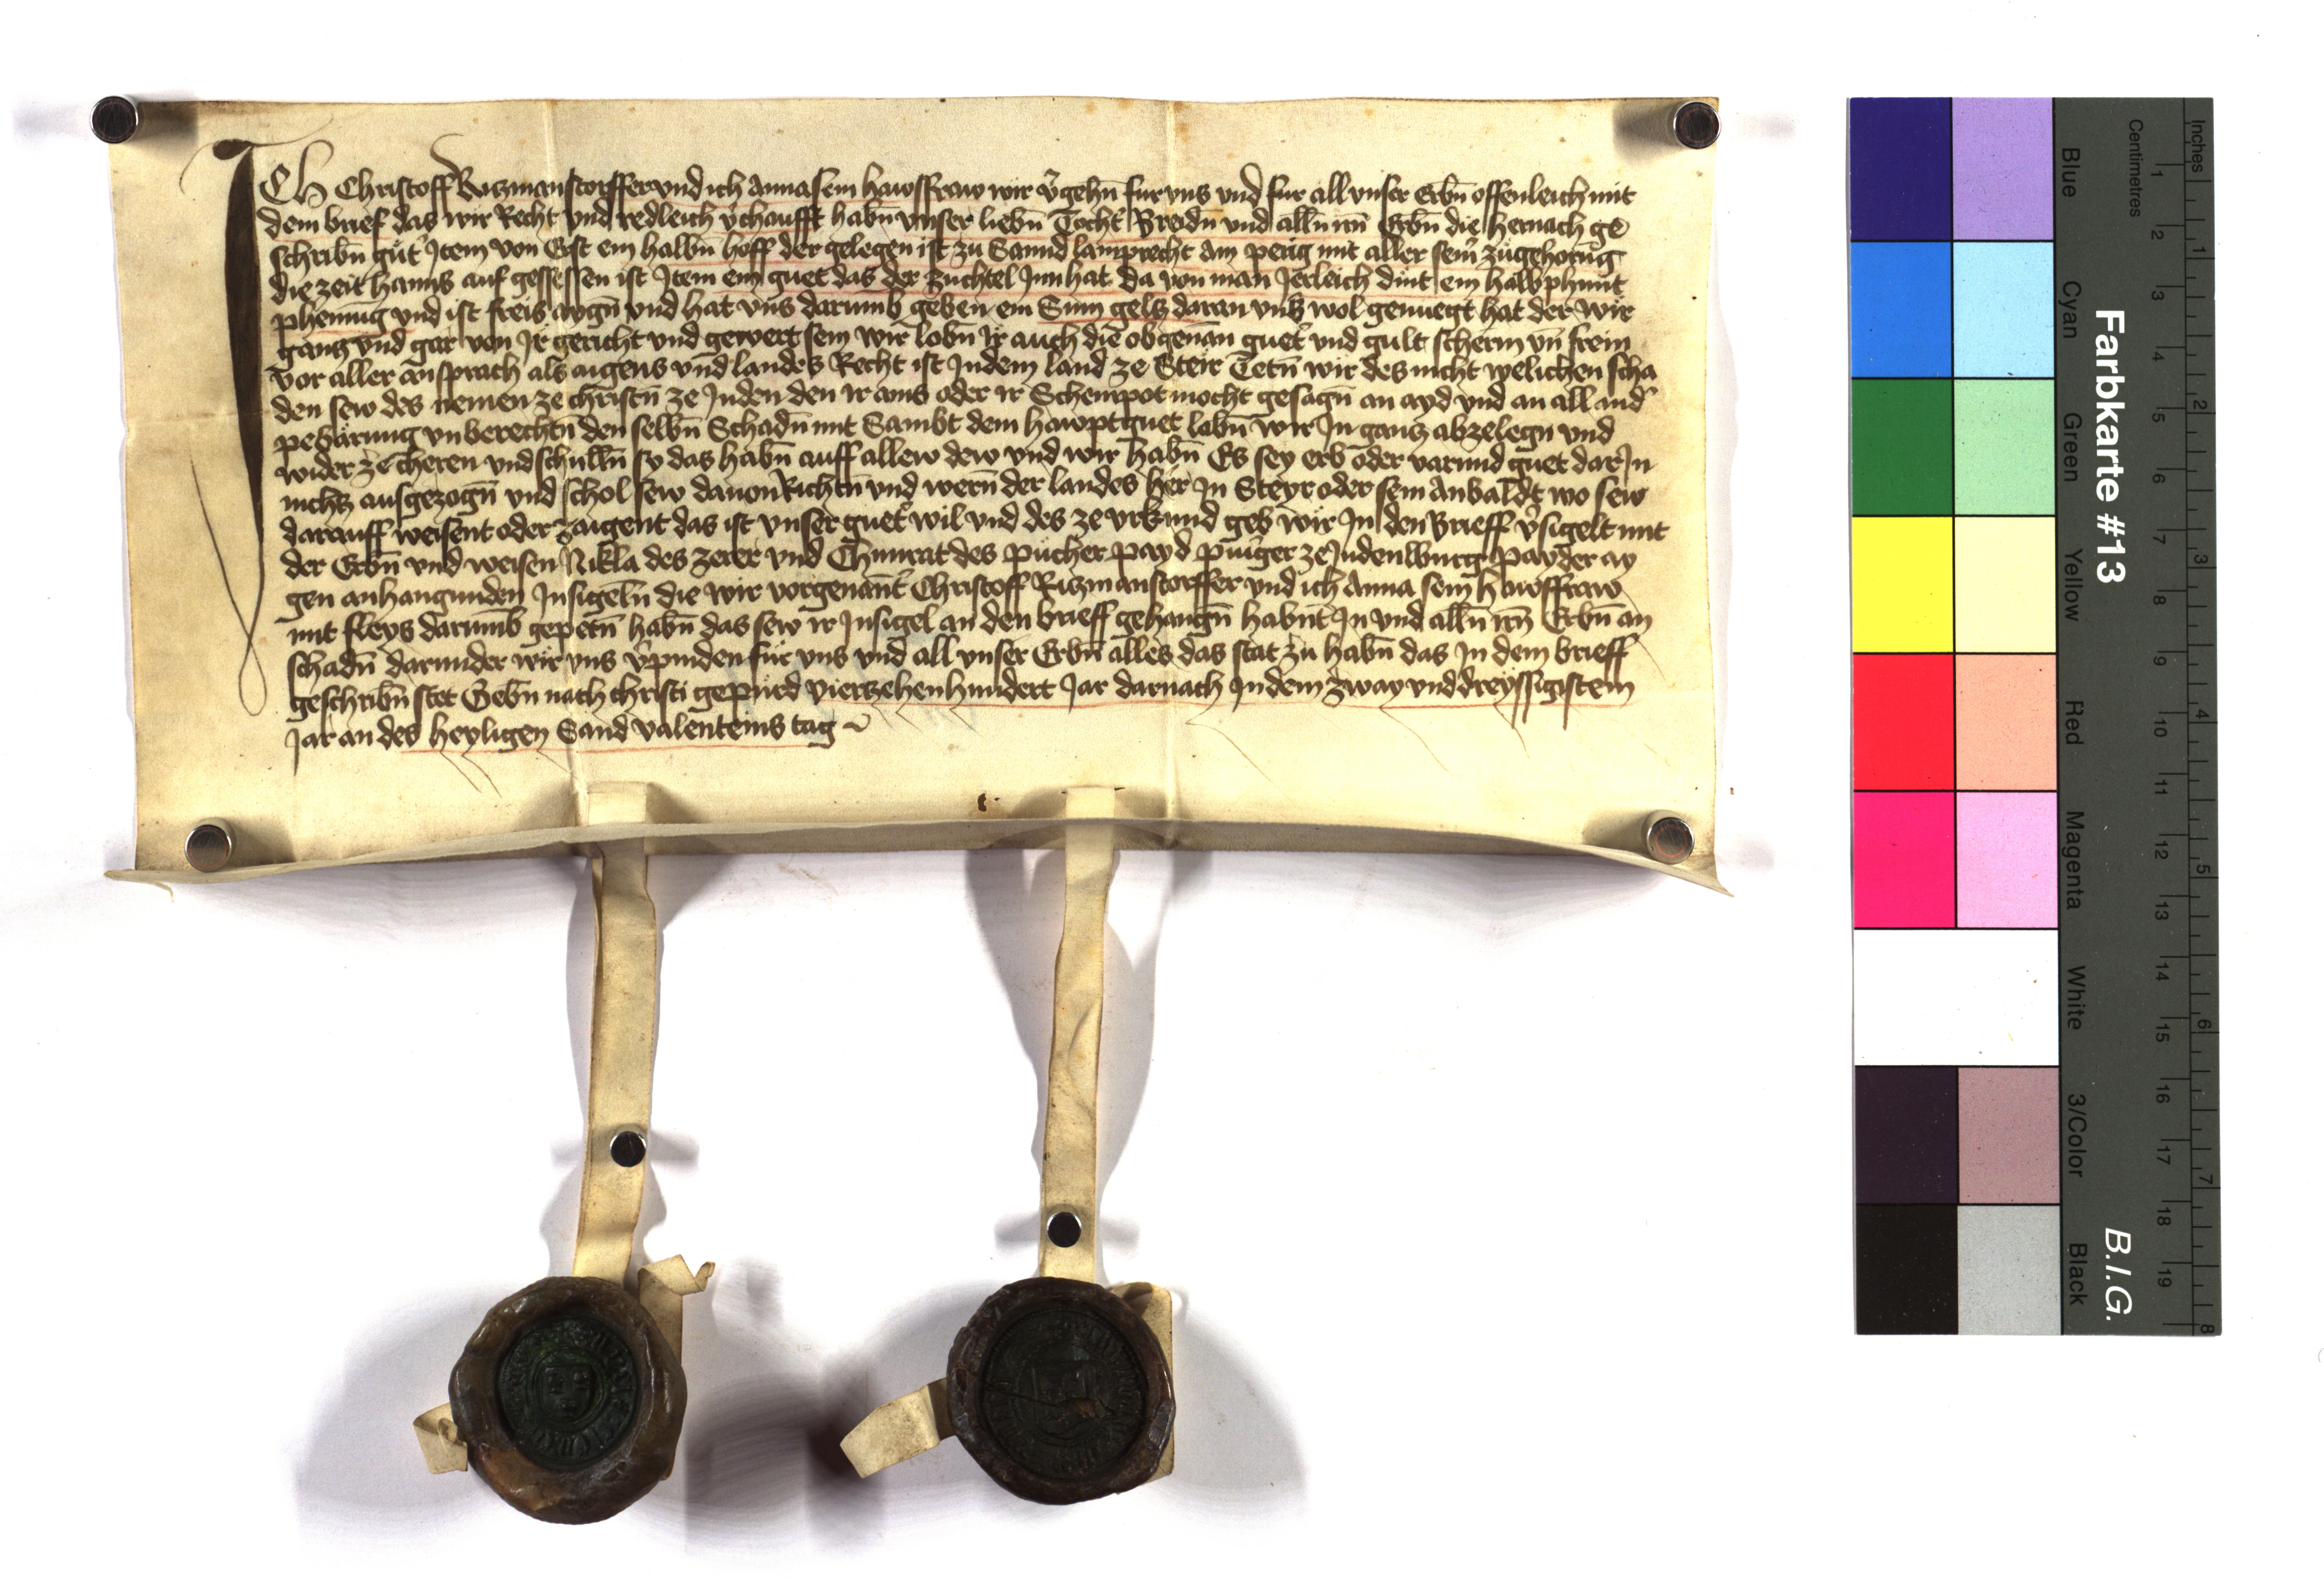 Ich Christoff Rizmanstorffer vnd ich Anna sein hawsfraw wir v̓gehn̄ fur vns vnd fur all vnser Erbn̄ offenleich mit
dem brief das wir Recht vnd redleich v̓chaufft habn̄ vnser liebn̄ Tocht̓ Breidn̄ vnd alln̄ irn̄ Erbn̄ die hernach ge
schribn̄ gut Item von Erst ein halbn̄ hoff der gelegen ist zu Sannd lamprecht am perig mit aller sein̓ zugehorūg
die zeit hanns auf gesessen ist Item ein guet das der zuchtel Inn hat da von man Jerleich dint ein halb phunt
phennig vnd ist freis aygn̄ vnd hat vns darumb geben ein Sum gelz daran vns wol genuegt hat der wir
ganz vnd gar von Ir gericht vnd gewert sein wir lobn̄ Ir auch die obgenan̄ guet̓ vnd gult scherm vn̄ frein
vor aller ansprach als aigens vnd landes Recht ist In dem land ze Steir Tetn̄ wir des nicht welichen scha
den sew des nemen ze christn̄ ze Juden den ir ains oder ir Scheinpot mocht gesagn̄ an ayd vnd an all and̓
pebarung vnberechtn̄ den selbn̄ Schadn̄ mit Sambt dem hawptguet lobn̄ wir In ganz abzelegn̄ vnd
wider ze cheren vnd schulln̄ sy das habn̄ auff allew dew vnd wir habn̄ Es sey erb oder varund guet dar In
nichtz ausgezogn̄ vnd schol sew dauon Richtn̄ vnd wern̄ der landes her In Steyr oder sein Anbaldt wo sew
darauff weisent oder zaigent das ist vnser guet̓ wil vnd des ze vrkund geb wir In den Brieff v̓sigelt mit
der Erbn̄ vnd weisen Nikla des zerer vnd Chunrat des pucher payd purger ze Judenburg payder ay
gen anhangunden Insigeln̄ die wir vorgenant̓ Christoff Rizmanstorffer vnd ich Anna sein hawsfraw
mit fleys darumb gepetn̄ habn̄ das sew ir Insigel an den brieff gehangn̄ habnt In vnd alln̄ irn̄ Erbn̄ an
schadn̄ darunder wir vns v̓pinden fur vns vnd all vnser Erbn̄ alles das stat zu habn̄ das In dem brieff
geschribn̄ stet Gebn̄ nach christi gepurd vierzehenhundert Jar darnach In dem zway vnd dreyssigistem
Jar an des heyligen Sand valenteins tag
Farbkarte #13
B.I.G.
Blue
Cyan
Green
Yellow
Red
Magenta
White
3/Color
Black
Centimetres
1 2 3 4 5 6 7 8 9 10 11 12 13 14 15 16 17 18 19
Inches
1 2 3 4 5 6 7 8